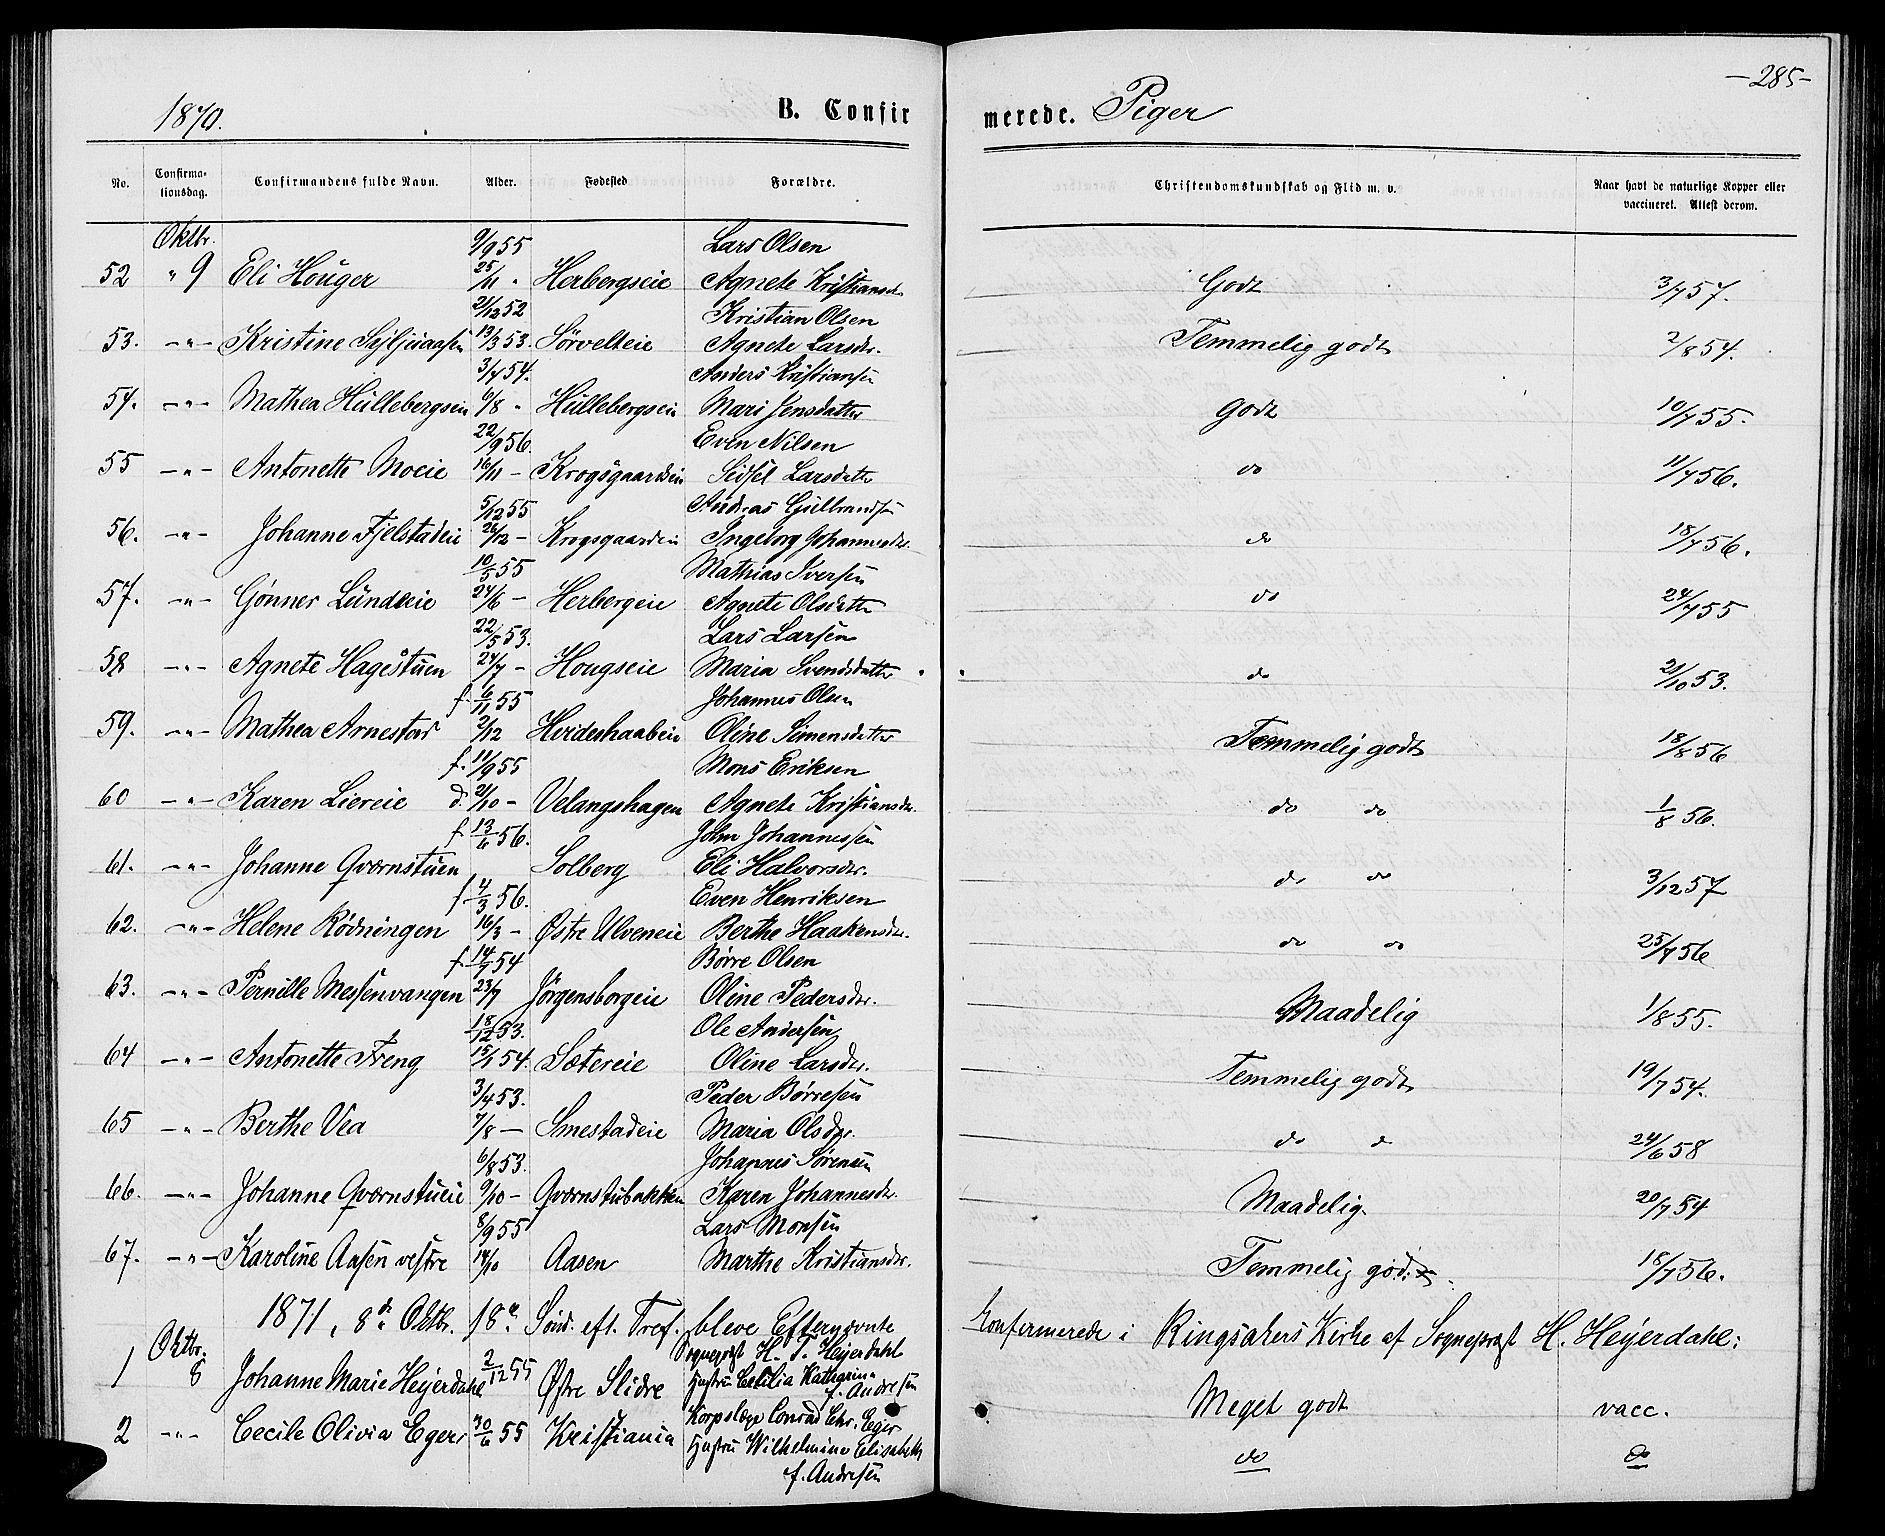 -285-
1870. B. Confirmerede. Piger
No. Confirmationsdag. Confirmandens fulde Navn. Alder. Fødested Forældre. Christendomskundskab og Flid m. v. Naar havt de naturlige Kopper eller vaccineret. Attest derom.
Oktbr. 9/9 55 Lars Olsen
52 " 9 Eli Houger 25/11 " Herbergseie Agnete Kristiansd. Godt 3/7 57.
21/12 52 Kristian Olsen
53. -"- Kristine 13/3 53. Sörvelteie Agnete Larsdr. Temmelig godt 2/8 54.
3/7 54. Anders Kristiansen
54. -"- Mathea Hullebergseie 6/8 " Hullebergseie Mari Jensdatter godt 10/7 55.
22/9 56. Even Nilsen
55 -"- Antonette Moeie 16/11 - Krogsgaardseie Sidsel Larsdatter do 11/7 56.
5/12 55 Andreas Gulbrandsen
56. -"- Johanne Fjelstadeie 26/12 - Krogsgaardeie Ingeborg Johannesdr. do 18/7 56.
10/5 55 Mathias Iversen
57. -"- Gönner Lundeeie 24/6 - Herbergeie Agnete Olsdatter do 24/7 55
22/5 53. Lars Larsen
58 -"- Agnete Hagestuen 24/7 - Hougseie Maria Svendsdatter do 21/10 53.
f. 6/11 55 Johannes Olsen
59. -"- Mathea Arnestad 2/12 Heideshaabeie Oline Simensdatter Temmelig godt 18/8 56
f. 11/9 55 Mons Eriksen
60 -"- Karen Liereie d. 21/10 - Velangshagen Agnete Kristiansdr. do do 1/8 56.
f. 13/6 56. John Johannessen
61. -"- Johanne Qværnstuen Solberg Eli Halvorsdr. do do 3/12 57
f 4/3 56. Even Henriksen
62. -"- Helene Rödningen 16/3 - Østre Ulveneie Berthe Haakensdr. do do 25/7 56
f. 14/7 54 Börre Olsen
63. -"- Pernille Messenvangen 23/7 Jörgensborgeie Oline Pedersdr. Maadelig 1/8 55.
18/12 53. Ole Andersen
64 -"- Antonette Freng 15/1 54. Sætereie Oline Larsdr. Temmelig godt 19/7 54.
3/4 53. Peder Börresen
65 -"- Berthe Vea 7/8 - Smestadeie Maria Olsdr. do d 24/6 58
6/8 53. Johannes Sörensen
66. -"- Johanne Qværnstueie 9/10 - Qværnstubakken Karen Johannesdr. Maadelig. 20/7 54
8/9 55 Lars Monsen
67. -"- Karoline Aasen vestre 14/10 Aasen Marthe Kristiansdr. Temmelig godt. 18/7 56.
1871, 8de Oktbr. 18e Sönd. eft. Tref. bleve Efternævnte Konfirmerede i Ringsakers Kirke af Sogneprest H. Heyerdahl:
Oktbr. Sogneprest H. T. Heyerdahl
1 8 Johanne Marie Heyerdahl 2/12 55 Østre Slidre Hustru Cecilia Kathrine f. Andresen Meget godt vacc.
2 -"- Cecile Olivia Eger 30/6 55 Kristiania Korpslæge Conrad Chr. Eger Hustru Wilhelmine Elisabeth f. Andresen do do